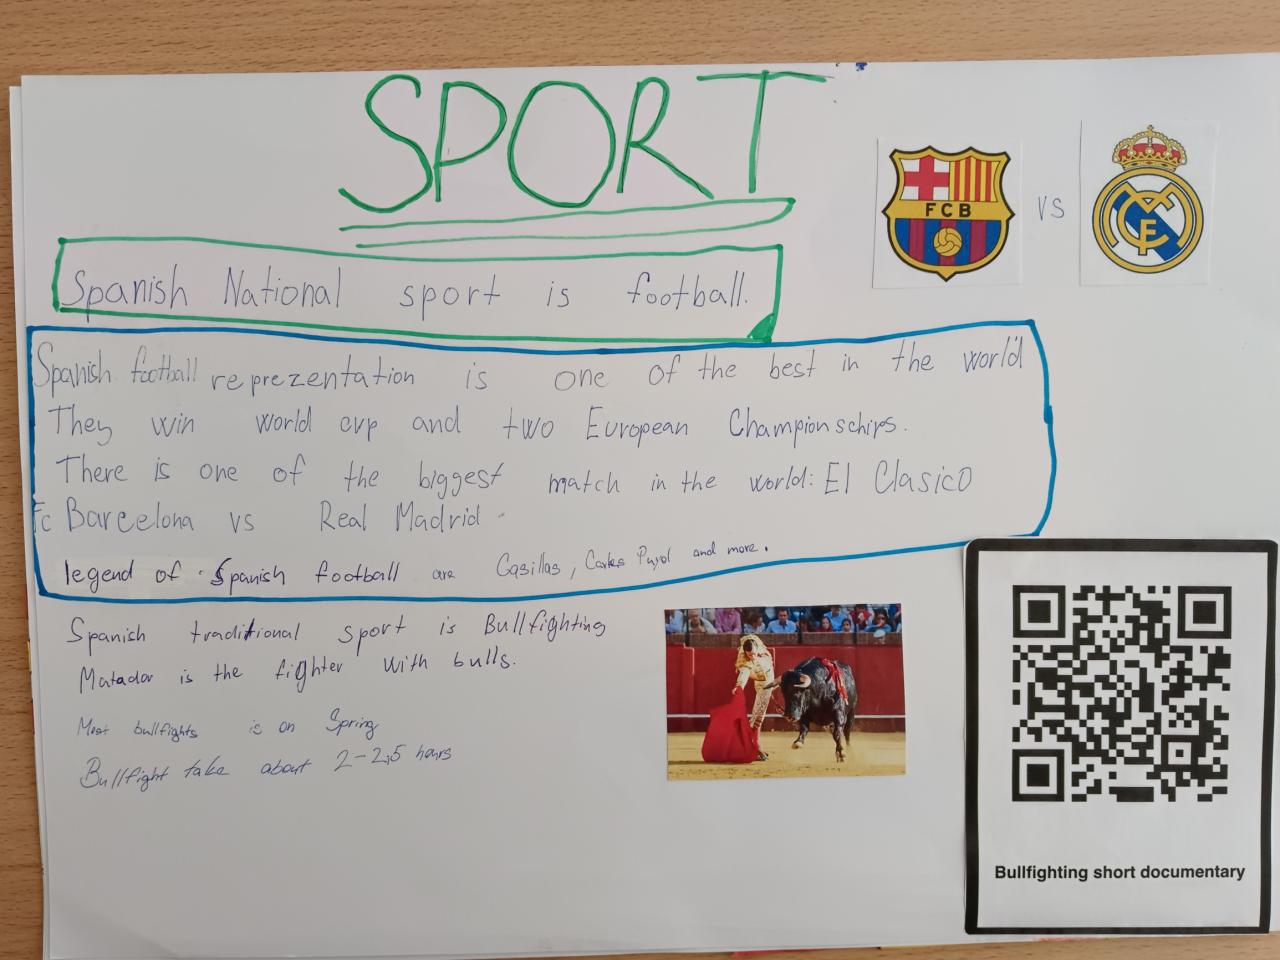 SPORT
FCB
VS
Spanish National sport is football.
Spanish football reprezentation is one of the best in the world
They win world cup and two European Championschips.
There is one of the biggest match in the world: El Clasico
Fc Barcelona vs Real Madrid.
legend of Spanish football are Casillas, Carles Puyol and more.
Spanish traditional sport is Bullfighting
Matador is the fighter with bulls.
Most bullfights is on Spring
Bullfight take about 2-2,5 hours
Bullfighting short documentary